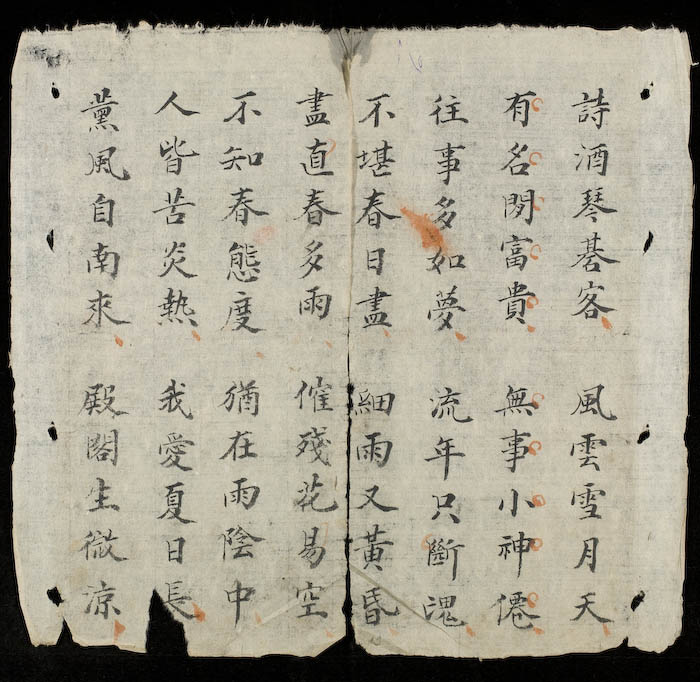 詩酒琴棊客 風雲雪月天
有名閑富貴 無事小神僊
往事多如夢 流年只斷魂
不堪春日盡 細雨又黃昏
盡直春多雨 催殘花易空
不知春態度 猶在雨陰中
人皆苦炎熱 我愛夏日長
薰風自南來 殿閣生微涼